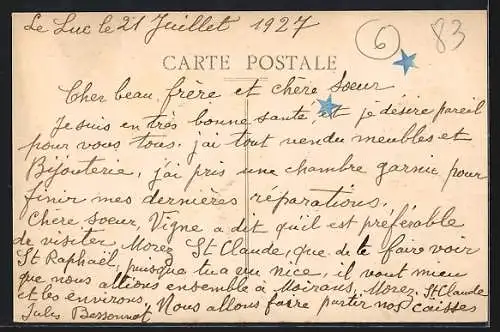 Le Luc le 21 Juillet 1927
6
83
CARTE POSTALE
Cher beau, frère et chère Soeur
Je suis en très bonne santé, et je désire pareil
pour vous tous. j'ai tout vendu meubles et
Bijouterie, j'ai pris une chambre garnie pour
finir mes dernières réparations.
Chère Soeur, Vigne a dit qu'il est préférable
de visiter, Morez St Claude, que de te faire voir
St Raphaël, puisque tu a vu nice, il vaut mieu
que nous allions ensemble à Moirans, Morez, St Claude
et les environs, Nous allons faire partir nos caisses
Jules Bessonnat